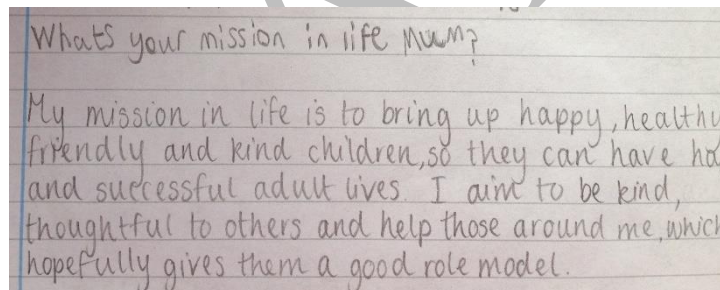 Whats your mission in life Mum?
My mission in life is to bring up happy, healthy
friendly and kind children, so they can have
and successful adult lives. I aim to be kind,
thoughtful to others and help those around me, which
hopefully gives them a good role model.